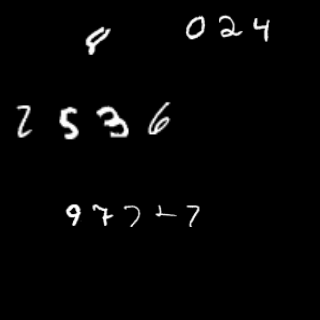 8 024
2536
977+7